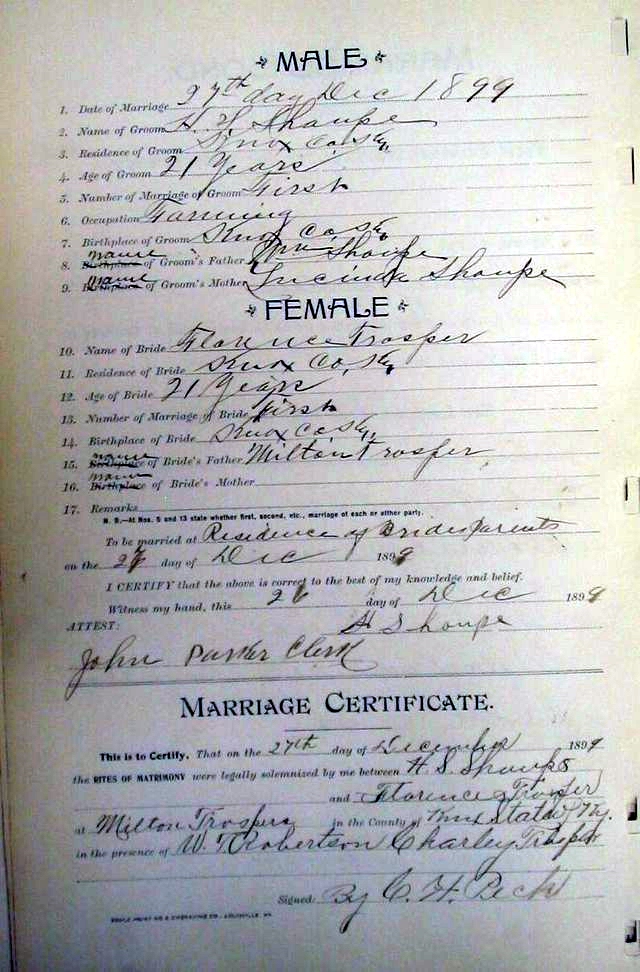 MALE
1. Date of Marriage 27th day Dec 1899
2. Name of Groom H. S. Shoupe
3. Residence of Groom Knox Co. Ky,
4. Age of Groom 21 Years
5. Number of Marriage of Groom First
6. Occupation Farming
7. Birthplace of Groom Knox Co Ky,
8. Birthplace name of Groom's Father Wm Shoupe
9. Birthplace name of Groom's Mother Lucinda Shoupe
FEMALE
10. Name of Bride Florence Trosper
11. Residence of Bride Knox Co, Ky,
12. Age of Bride 21 Years
13. Number of Marriage of Bride First
14. Birthplace of Bride Knox Co Ky,
15. Birthplace name of Bride's Father Milton Trosper
16. Birthplace name of Bride's Mother
17. Remarks
N. B.—At Nos. 5 and 13 state whether first, second, etc., marriage of each or either party.
To be married at Residence of Brides Parents
on the 27 day of Dec 1899
I CERTIFY that the above is correct to the best of my knowledge and belief.
Witness my hand, this 26 day of Dec 1899
ATTEST: H S Shoupe
John Parker Clerk
MARRIAGE CERTIFICATE.
This is to Certify, That on the 27th day of December 1899
the RITES OF MATRIMONY were legally solemnized by me between H. S. Shoupe
and Florence Trosper
at Milton Trospers in the County of Knox State of Ky.
in the presence of W. T. Robertson Charley Trosper
Signed: By C. H. Peck